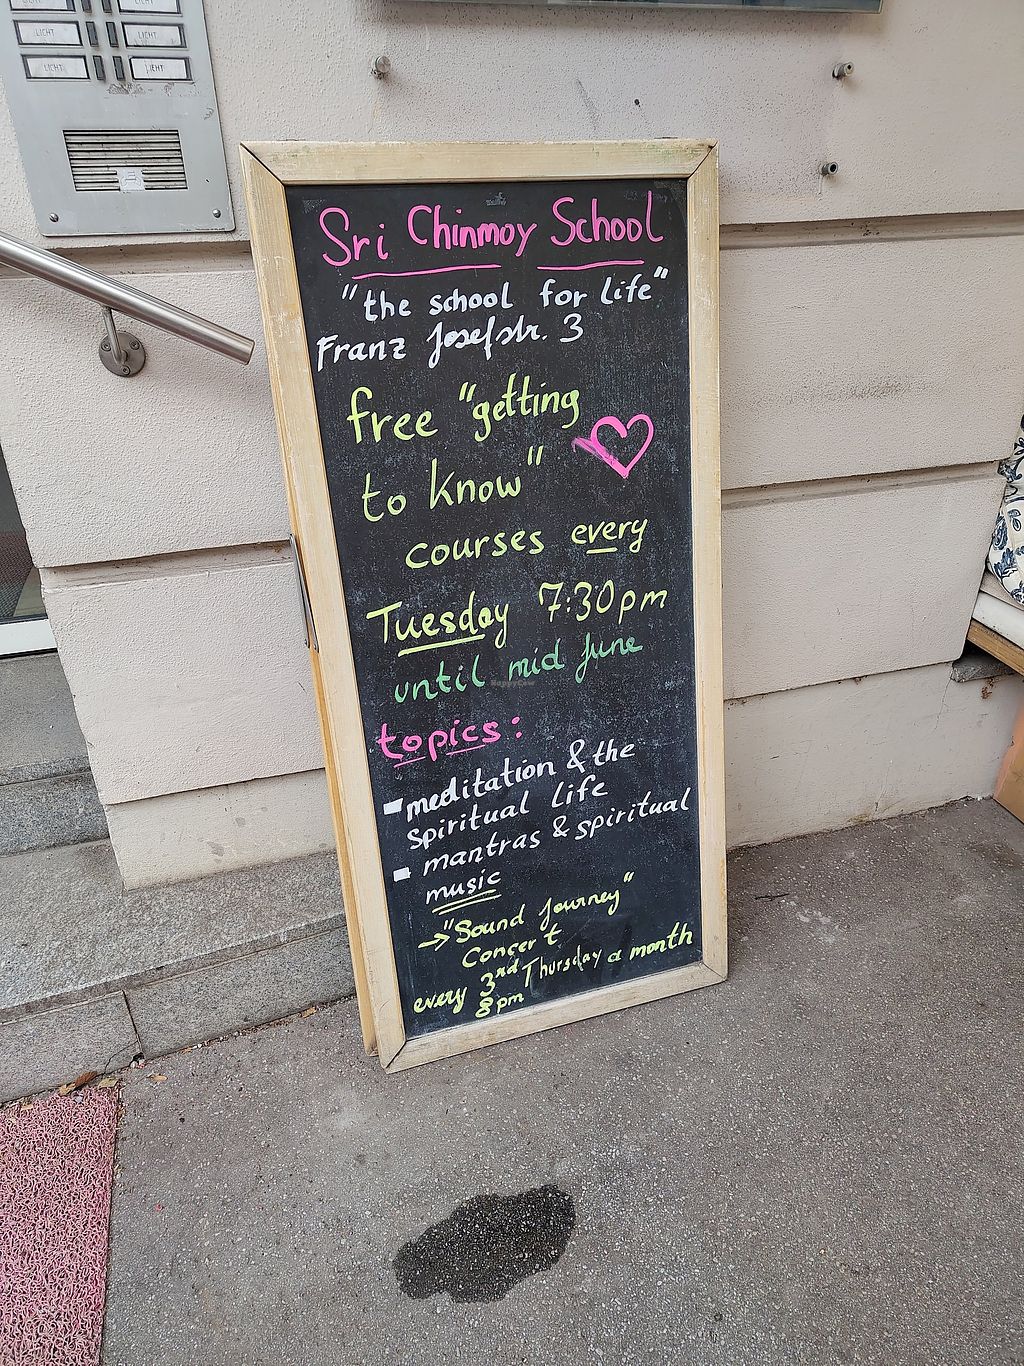 LICHT LICHT
LICHT LICHT
LICHT LICHT
Sri Chinmoy School
"the school for life"
Franz Josefstr. 3
free "getting
to know"
courses every
Tuesday 7:30pm
until mid June
HappyCow
topics:
meditation & the
spiritual life
mantras & spiritual
music
→ "Sound Journey"
Concert
every 3rd Thursday a month
8pm